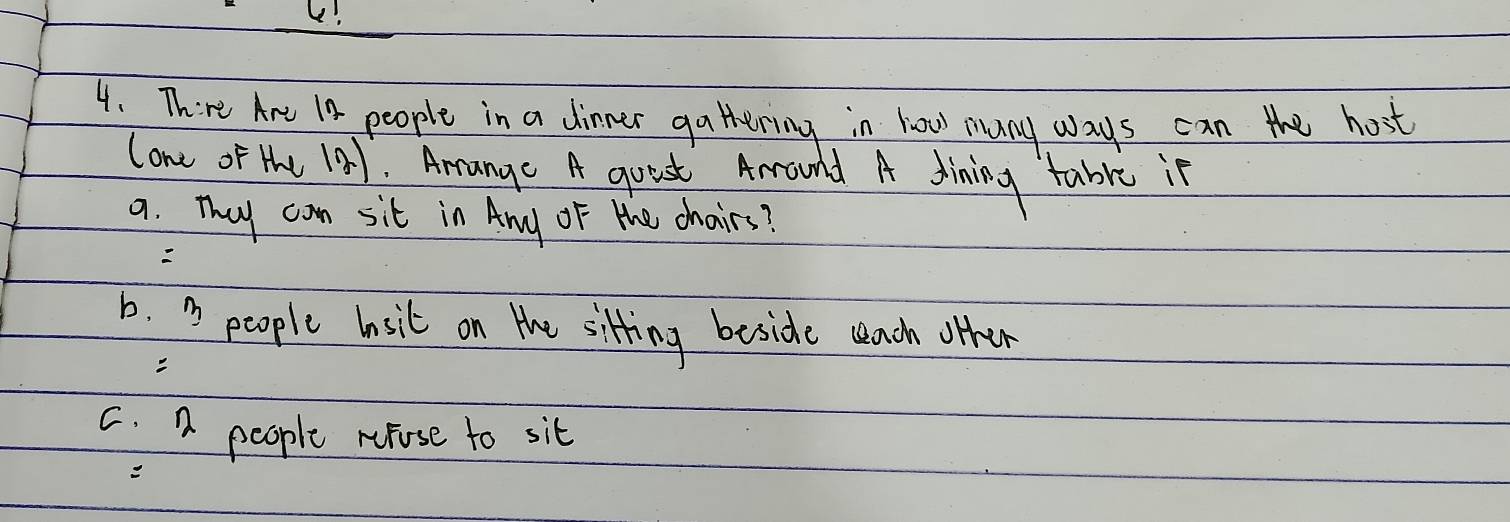 4!
4. There Are 12 people in a dinner gathering in how many ways can the host
(one of the 12). Arrange A guest Arround A dining table if
a. They can sit in Any of the chairs?
=
b. 3 people insit on the sitting beside each other
=
c. 2 people refuse to sit
=